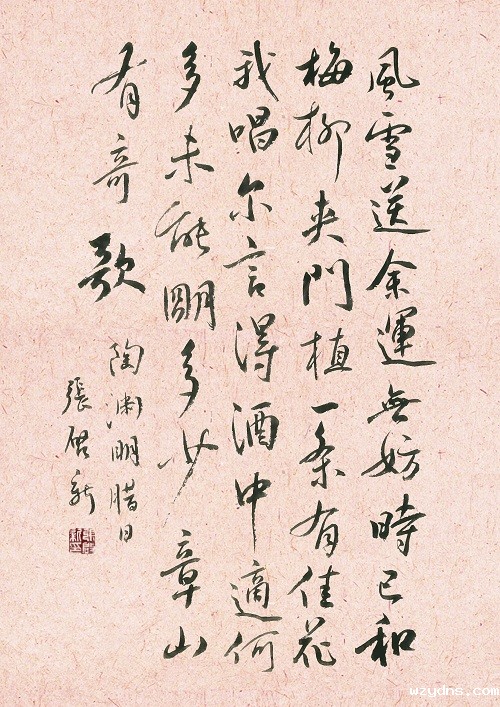 風雪送余運無妨時已和
梅柳夹門植一条有佳花
我唱尔言得酒中適何
多未能明多少章山
有奇歌
陶渊明腊日
張啟新
wzydns.com